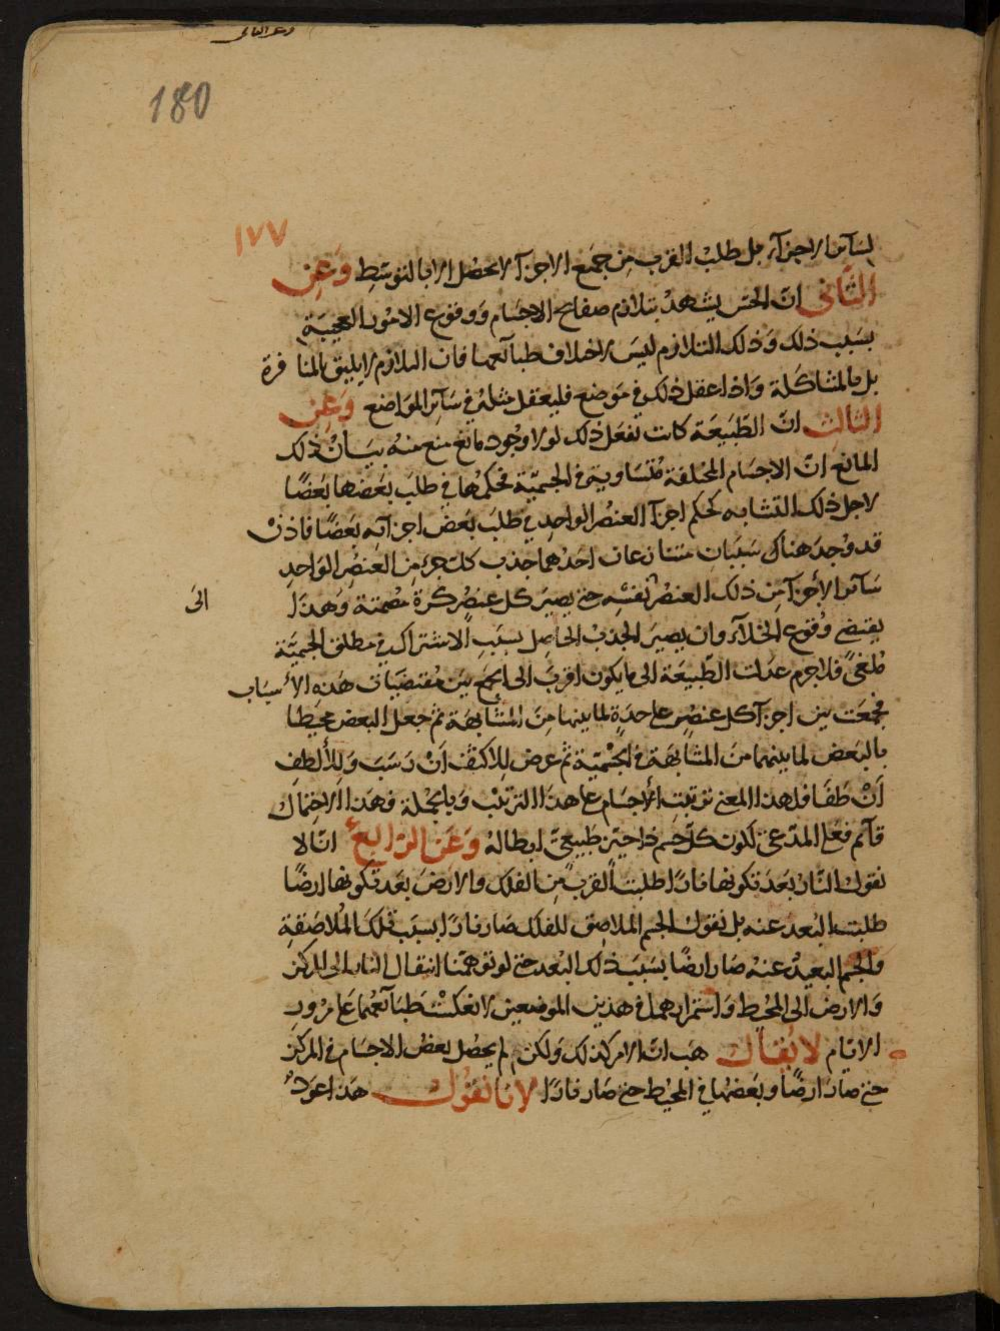 180
١٧٧
لسائر الاجزآء بل طلب القرب من جميع الاجزآ لا يحصل الا بالتوسط وعن
الثانى ان الحس يشهد بتلازم صفايح الاجسام ووقوع الامور العجيبة
بسبب ذلك وذلك التلازم ليس لاختلاف طبآئعها فان التلازم لا يليق بالمنافرة
بل بالمشاكلة واذا عقل ذلك فى موضع فليعقل مثله فى سآئر المواضع وعن
الثالث ان الطبيعة كانت تفعل ذلك لولا وجود مانع منع منه بيان ذلك
المانع ان الاجسام المختلفة متساوية فى الجسمية فحكمها فى طلب بعضها بعضًا
لاجل ذلك التشابه كحكم اجزآ العنصر الواحد فى طلب بعض اجزآئه بعضًا فاذن
قد وجد هناك سببان متنازعان احدهما جذب كل جزء من العنصر الواحد
سآئر الأجزآ من ذلك العنصر نفسه حتى يصير كل عنصر كرة مصمتة وهذا
الى
يقتضى وقوع الخلاء وان يصير الجذب الحاصل بسبب الاشتراك فى مطلق الجسمية
ملغىً فلا جرم عدلت الطبيعة الى ما يكون اقرب الى الجمع بين مقتضيات هذه الأسباب
فجمعت بين اجزآ كل عنصر على حدة لما بينها من المشابهة ثم جعل البعض محيطا
بالبعض لما بينهما من المشابهة فى الجسمية ثم عرض للاكثف ان رسب وللألطف
ان طفا فلهذا المعنى ترتبت الأجسام على هذا الترتيب وبالجملة فهذا الاحتمال
قآئم فعلى المدعى لكون كل جسم ذا حيز طبيعى ابطاله وعن الرابع انا لا
نقول النار بعد تكونها نارًا طلبت القرب من الفلك والارض بعد تكونها ارضًا
طلبت البعد عنه بل نقول الجسم الملاصق للفلك صار نارًا بسبب تلك الملاصقة
والجسم البعيد عنه صار ارضًا بسبب ذلك البعد حتى لو توهمنا انتقال النار الى المركز
والارض الى المحيط واستمرارهما فى هذين الموضعين لانعكست طبآئعهما على مرور
الايام لا يقال هب ان الامر كذلك ولكن لم يحصل بعض الاجسام فى المركز
حتى صار ارضًا وبعضها فى المحيط حتى صار نارًا لانا نقول هذا عود